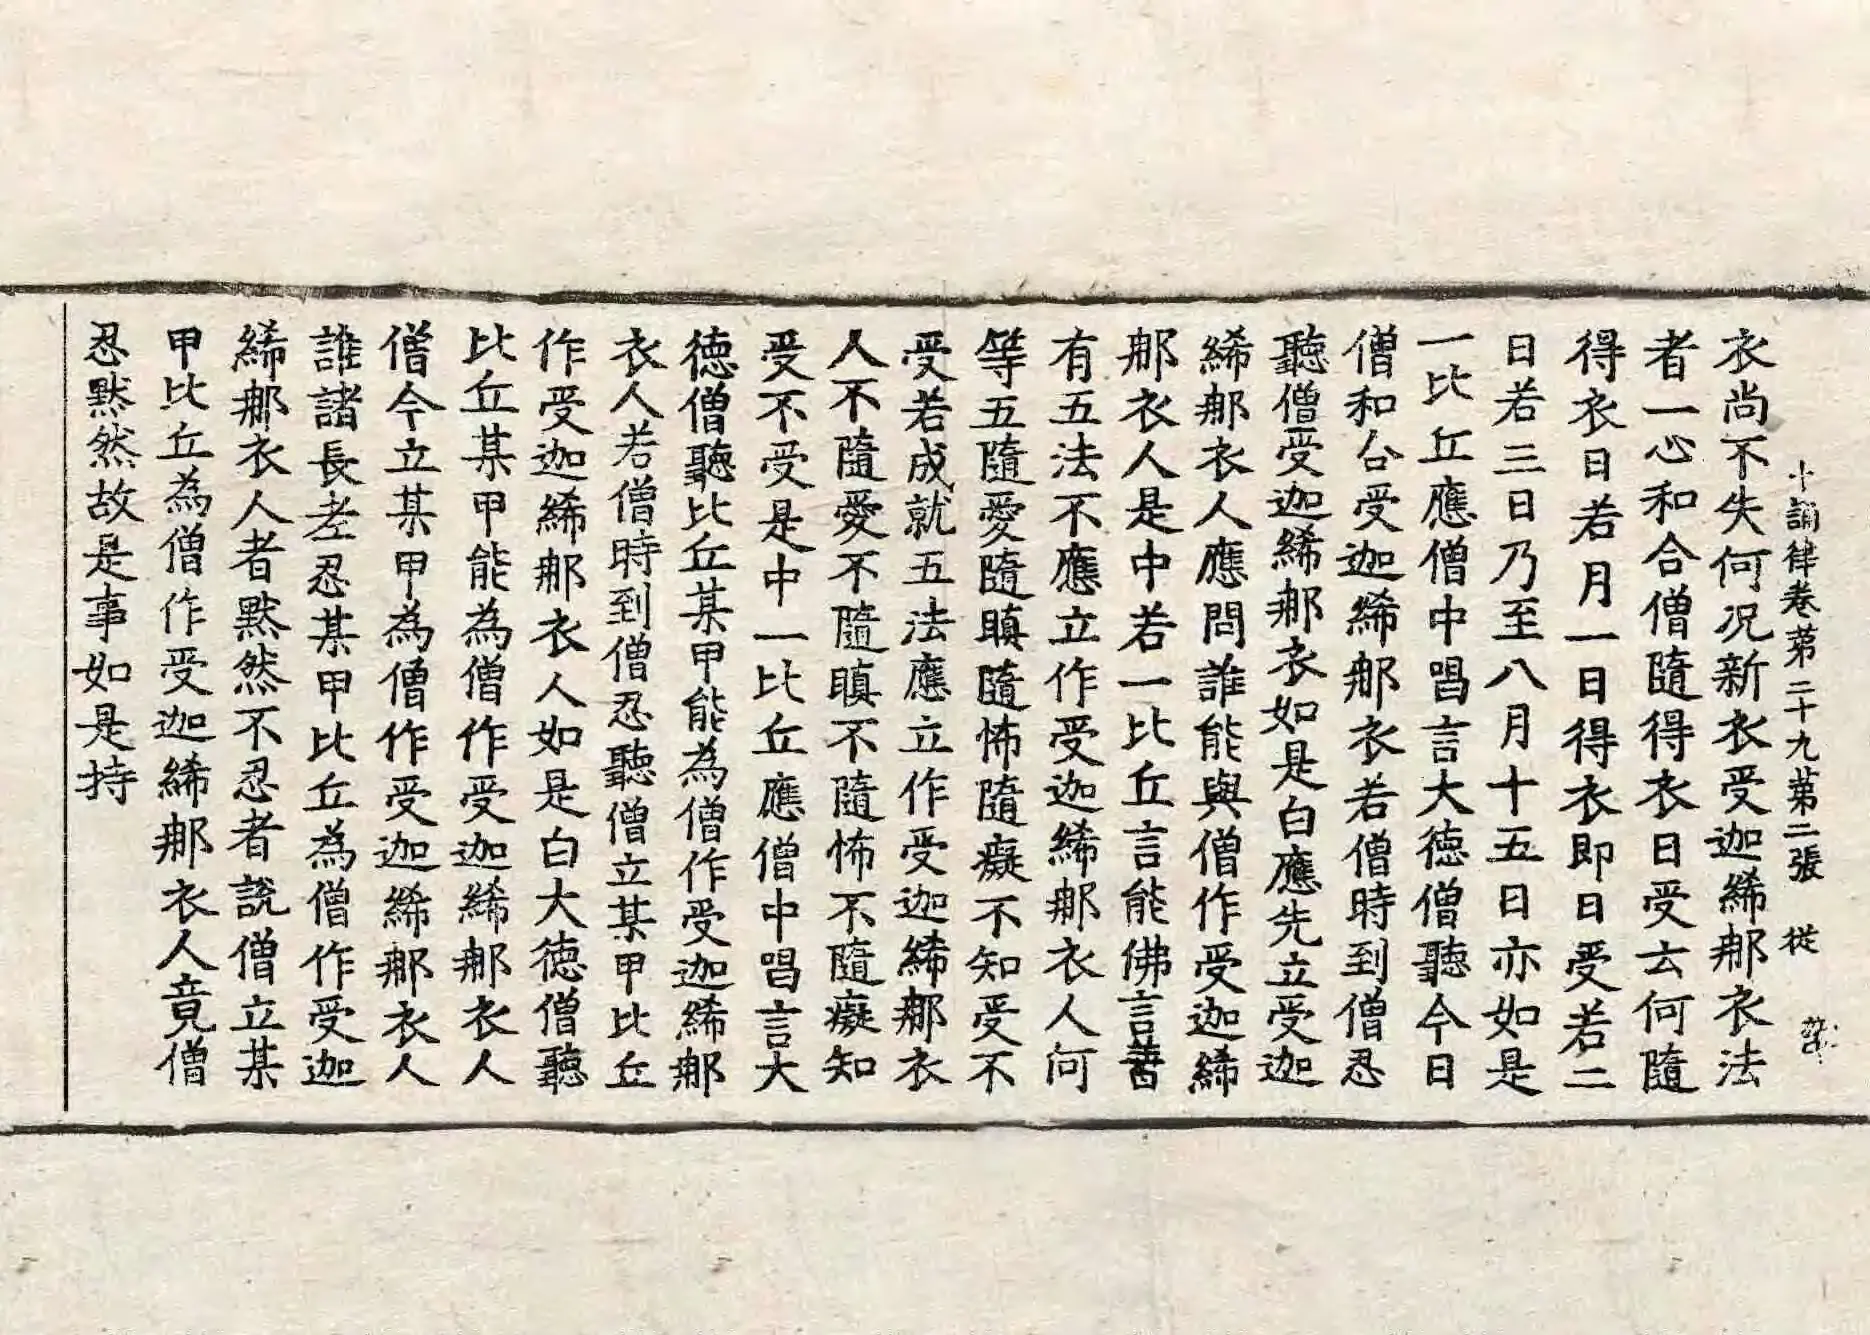 十誦律卷第二十九第二張　從
衣尚不失何况新衣受迦絺那衣法
者一心和合僧隨得衣日受云何隨
得衣日若月一日得衣即日受若二
日若三日乃至八月十五日亦如是
一比丘應僧中唱言大徳僧聽今日
僧和合受迦絺那衣若僧時到僧忍
聽僧受迦絺那衣如是白應先立受迦
絺那衣人應問誰能與僧作受迦絺
那衣人是中若一比丘言能佛言善
有五法不應立作受迦絺那衣人何
等五隨愛隨瞋隨怖隨癡不知受不
受若成就五法應立作受迦絺那衣
人不隨愛不隨瞋不隨怖不隨癡知
受不受是中一比丘應僧中唱言大
徳僧聽比丘某甲能為僧作受迦絺那
衣人若僧時到僧忍聽僧立某甲比丘
作受迦絺那衣人如是白大徳僧聽
比丘某甲能為僧作受迦絺那衣人
僧今立某甲為僧作受迦絺那衣人
誰諸長老忍某甲比丘為僧作受迦
絺那衣人者默然不忍者說僧立某
甲比丘為僧作受迦絺那衣人竟僧
忍默然故是事如是持